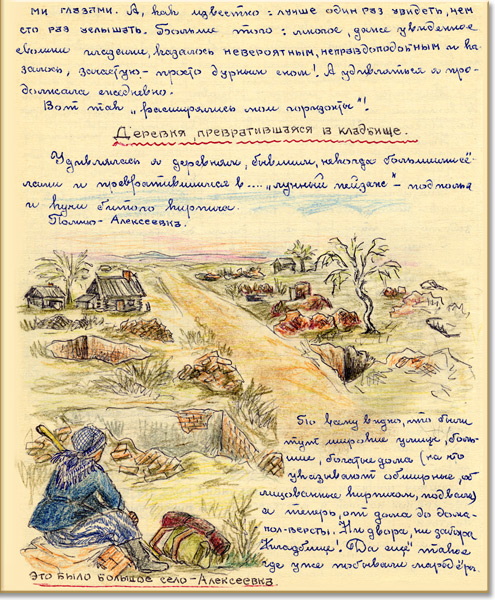 ми глазами. А, как известно: лучше один раз увидеть, чем
сто раз услышать. Больше того: многое, даже увиденное
своими глазами, казалось невероятным, неправдоподобным и ка-
залось, зачастую - просто дурным сном! А удивляться я про-
должала ежедневно.
Вот так „расширялись мои горизонты"!
Деревня, превратившаяся в кладбище.
Удивлялась я деревням, бывшим, некогда большими сё-
лами и превратившимся в.... „лунный пейзаж" - подполья
и кучи битого кирпича.
Помню - Алексеевка.
По всему видно, что были
тут широкие улицы, боль-
шие, богатые дома (на что
указывают обширные, об-
лицованные кирпичом, подвалы)
а теперь, от дома до дома -
пол-версты. Ни двора, ни забора
Кладбище! Да ещё такое
где уже побывали мародёры.
Это было большое село - Алексеевка.